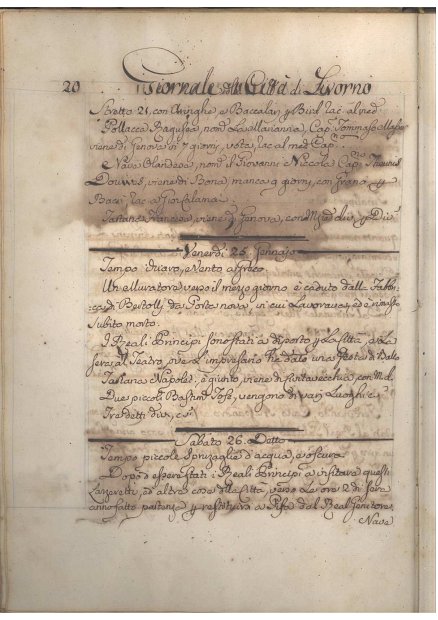 20 Giornale della Città di Livorno
Stretto 21, con Aringhe, e Baccalari, p Bird rac. al med.
Pollacca Ragusea, nom. La Marianna, Cap.
viene di Genova in 7 giorni, vota, rac. al med. Cap.
e Nave Olandese, nom. il Giovanni Niccola Cap.
Douwes, viene di Bona, manca 9 giorni, con Grano, p
Baci, rac. a
Tartana Francese, viene di Genova, con Mer. div. p Div.
Venerdì 25. Gennajo
Tempo chiaro, e Vento a Greco.
Un Muratore verso il mezzo giorno è caduto dalla Fabbri-
ca di Bertolli, da Porta nuova, in cui Lavorava, ed è rimasto
subito morto.
I Reali Principi sono stati a diporto p la Città, e la
sera al Teatro, ove l'impresario ha dato una Festa di Ballo
Tartana Napolet. è giunta, viene di Civitavecchia, con M. d.
Due piccoli Bastim. Tosc. vengono di vari Luoghi, e
Tre detti div. c.
Sabato 26. Detto
Tempo piccole spruzzaglie d'acqua, e oscura.
Dopo d'essere stati i Reali Principi a visitare questi
Lazzeretti, ed altre cose della Città, verso Le ore 2 di sera
anno fatto partenza p restituirsi a Pisa dal Real Genitore.
Nave